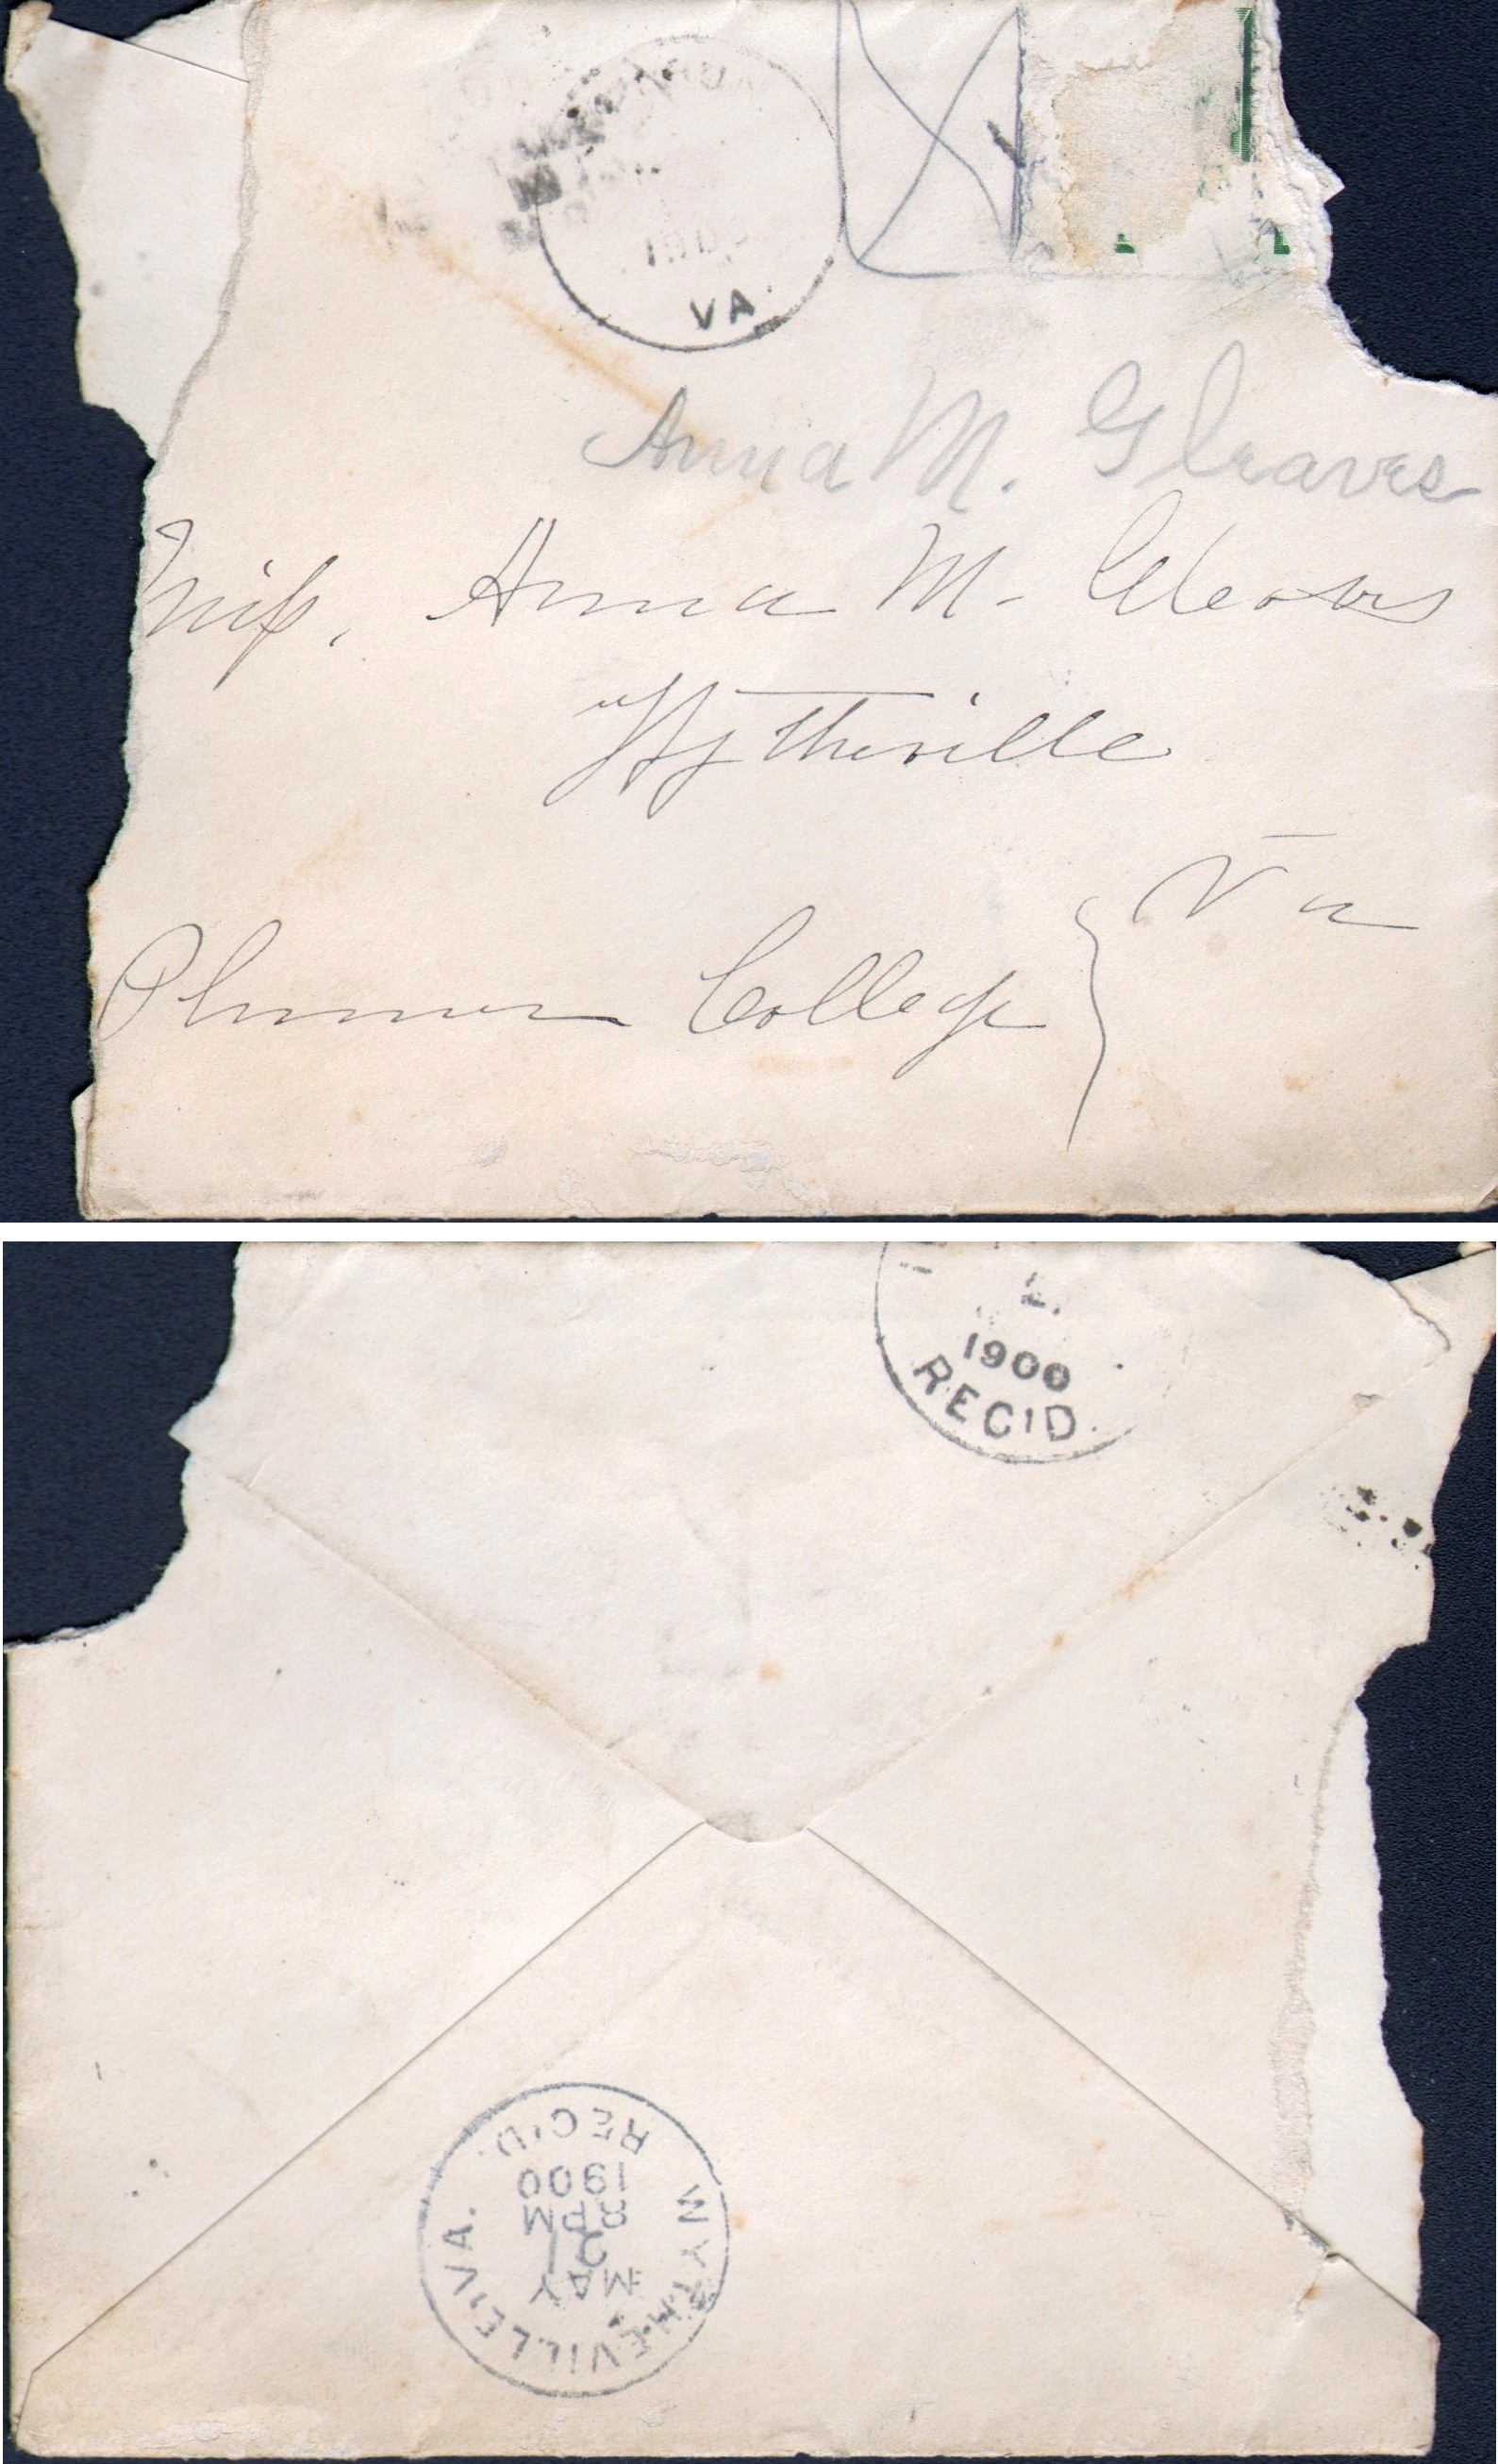 1900
VA.
Anna M. Gleaves
Miss. Anna M. Gleaves
Wytheville
Va
Plumer College
1900
REC'D.
WYTHEVILLE, VA.
MAY
21
8 PM
1900
REC'D.